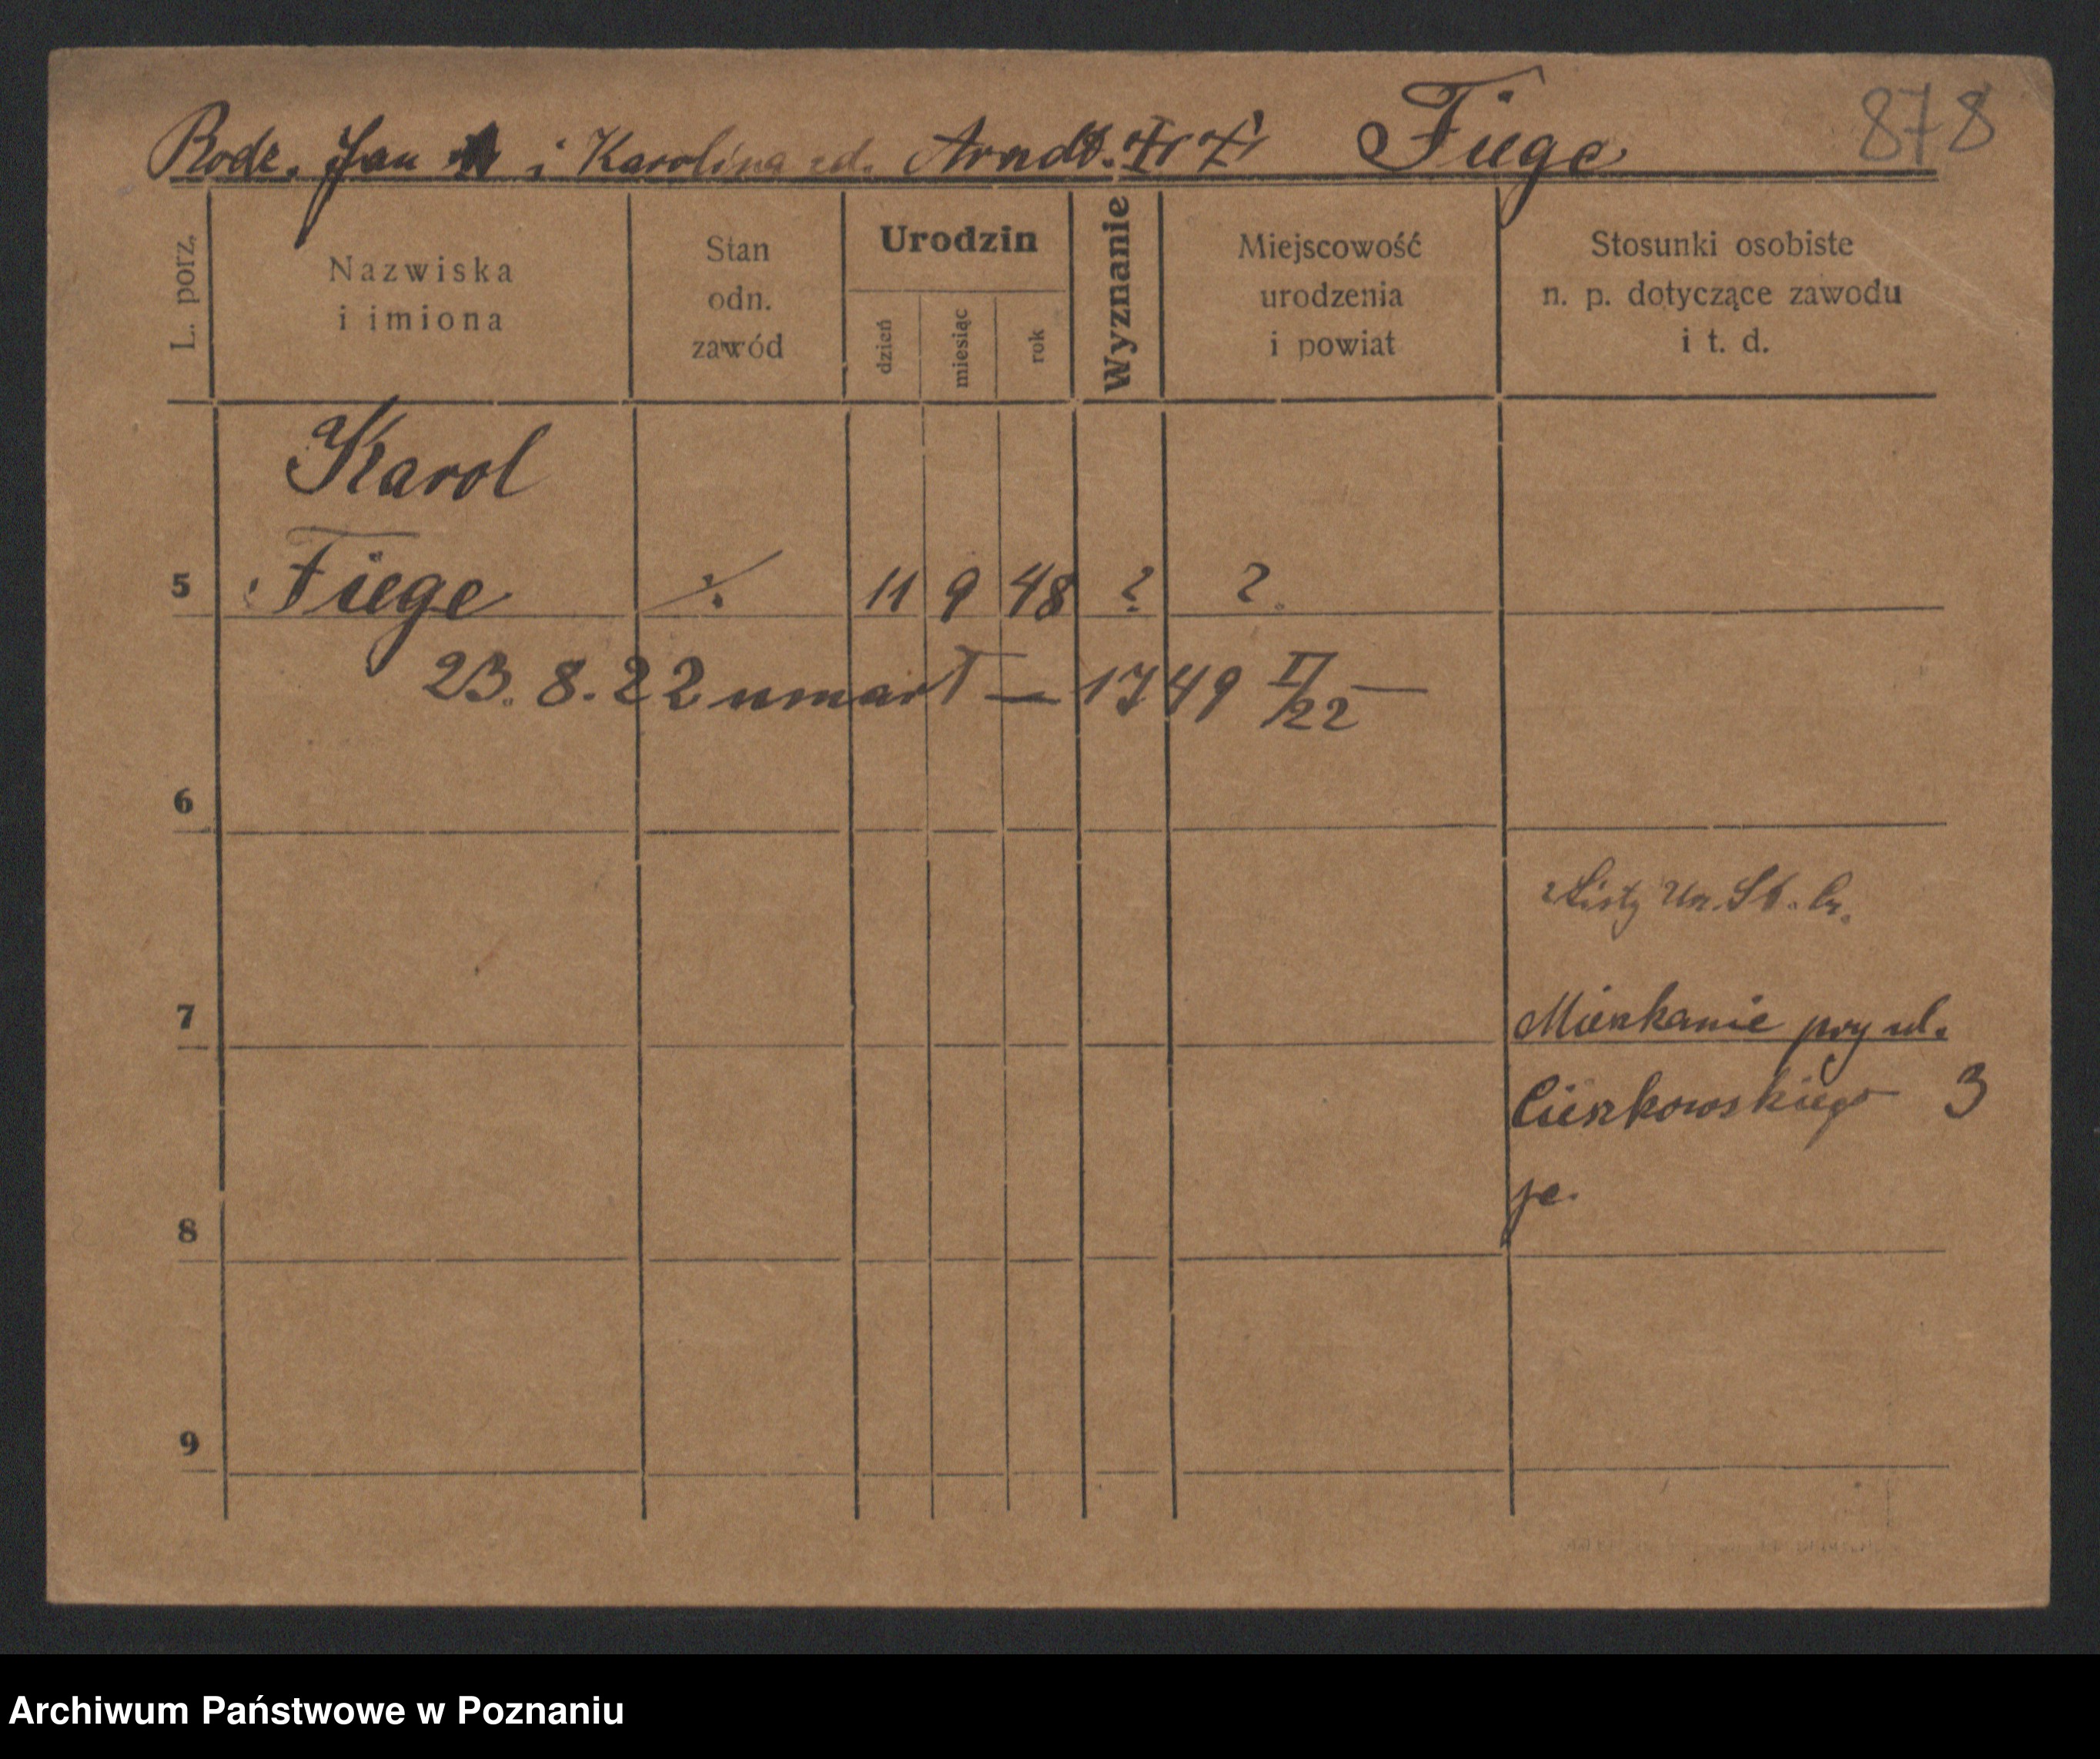 Rodz. Jan i Karolina zd. Arndt. Fiege 878
L. porz.
Nazwiska
i imiona
Stan
odn.
zawód
Urodzin
dzień
miesiąc
rok
Wyznanie
Miejscowość
urodzenia
i powiat
Stosunki osobiste
n. p. dotyczące zawodu
i t. d.
Karol
5 Fiege ./. 11 9 48 ? ?
23. 8. 22 umarł — 1749 II/22 —
6
z Listy Urz. St. Cy.
7 Mieszkanie przy ul.
Cieszkowskiego 3
8
9
Archiwum Państwowe w Poznaniu